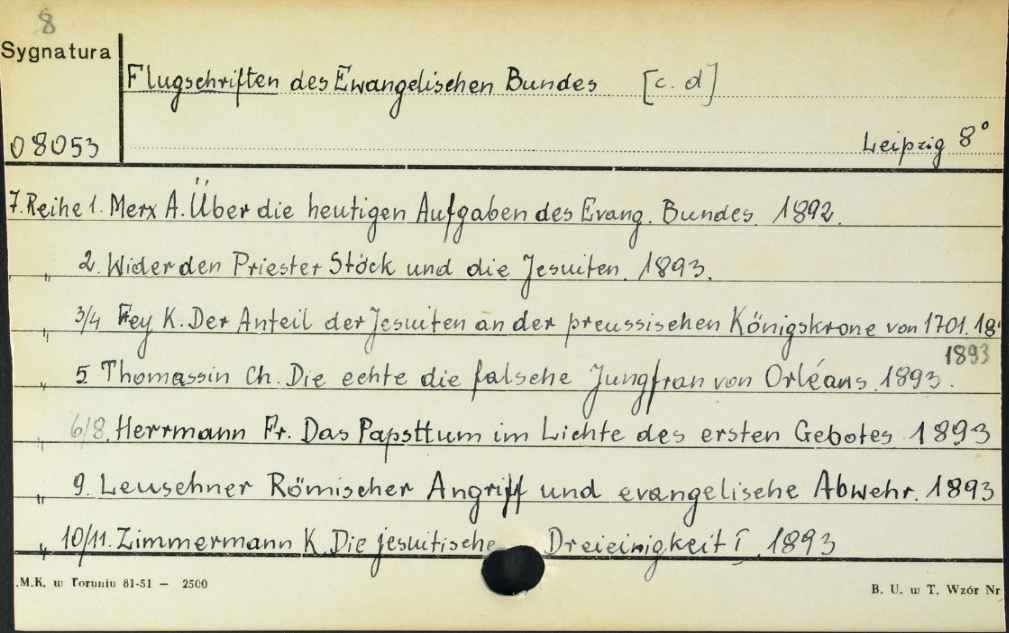 8
Sygnatura
Flugschriften des Ewangelischen Bundes [c. d]
08053
Leipzig 8°
7. Reihe 1. Merx A. Über die heutigen Aufgaben des Evang. Bundes. 1892.
„ 2. Wider den Priester Stöck und die Jesuiten. 1893.
„ 3/4 Frey K. Der Anteil der Jesuiten an der preussischen Königskrone von 1701. 18
1893
„ 5. Thomassin Ch. Die echte die falsche Jungfrau von Orléans. 1893.
„ 6/8. Herrmann Fr. Das Papsttum im Lichte des ersten Gebotes 1893
„ 9. Leuschner Römischer Angriff und evangelische Abwehr. 1893
„ 10/11. Zimmermann K. Die jesuitische Dreieinigkeit I. 1893
.M.K. w Toruniu 81-51 — 2500
B. U. w T. Wzór Nr